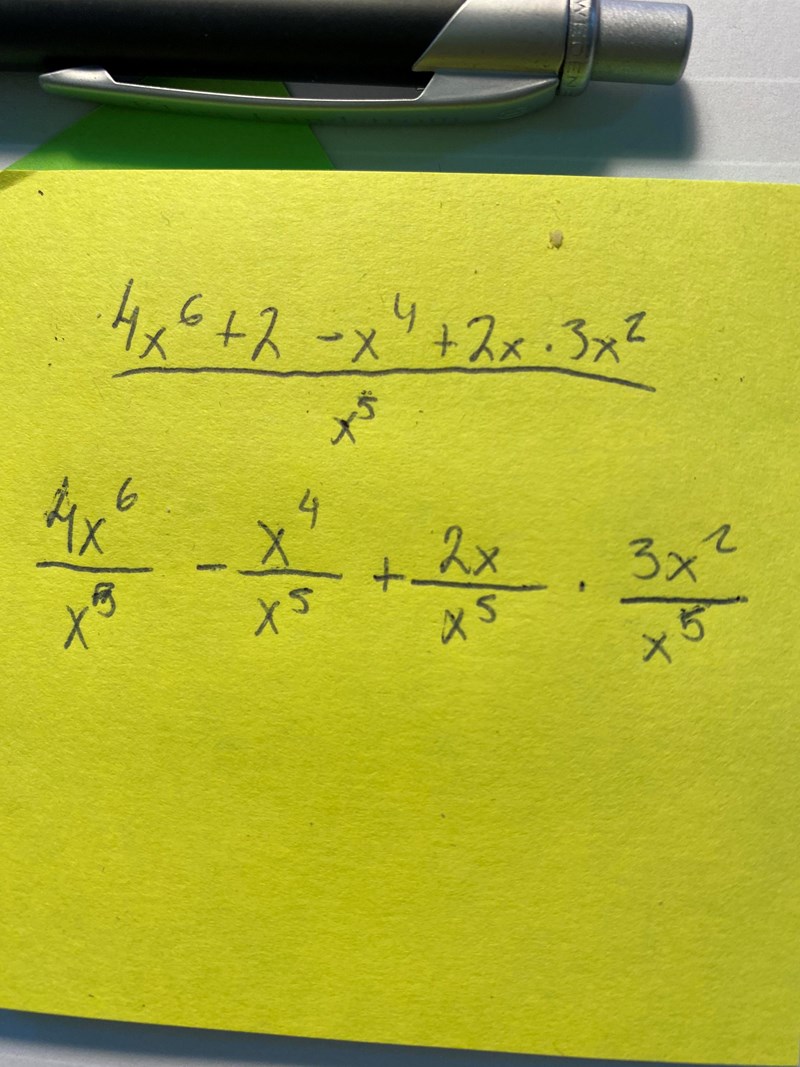 4x⁶ + 2 - x⁴ + 2x · 3x²
x⁵
4x⁶/x⁵ - x⁴/x⁵ + 2x/x⁵ · 3x²/x⁵